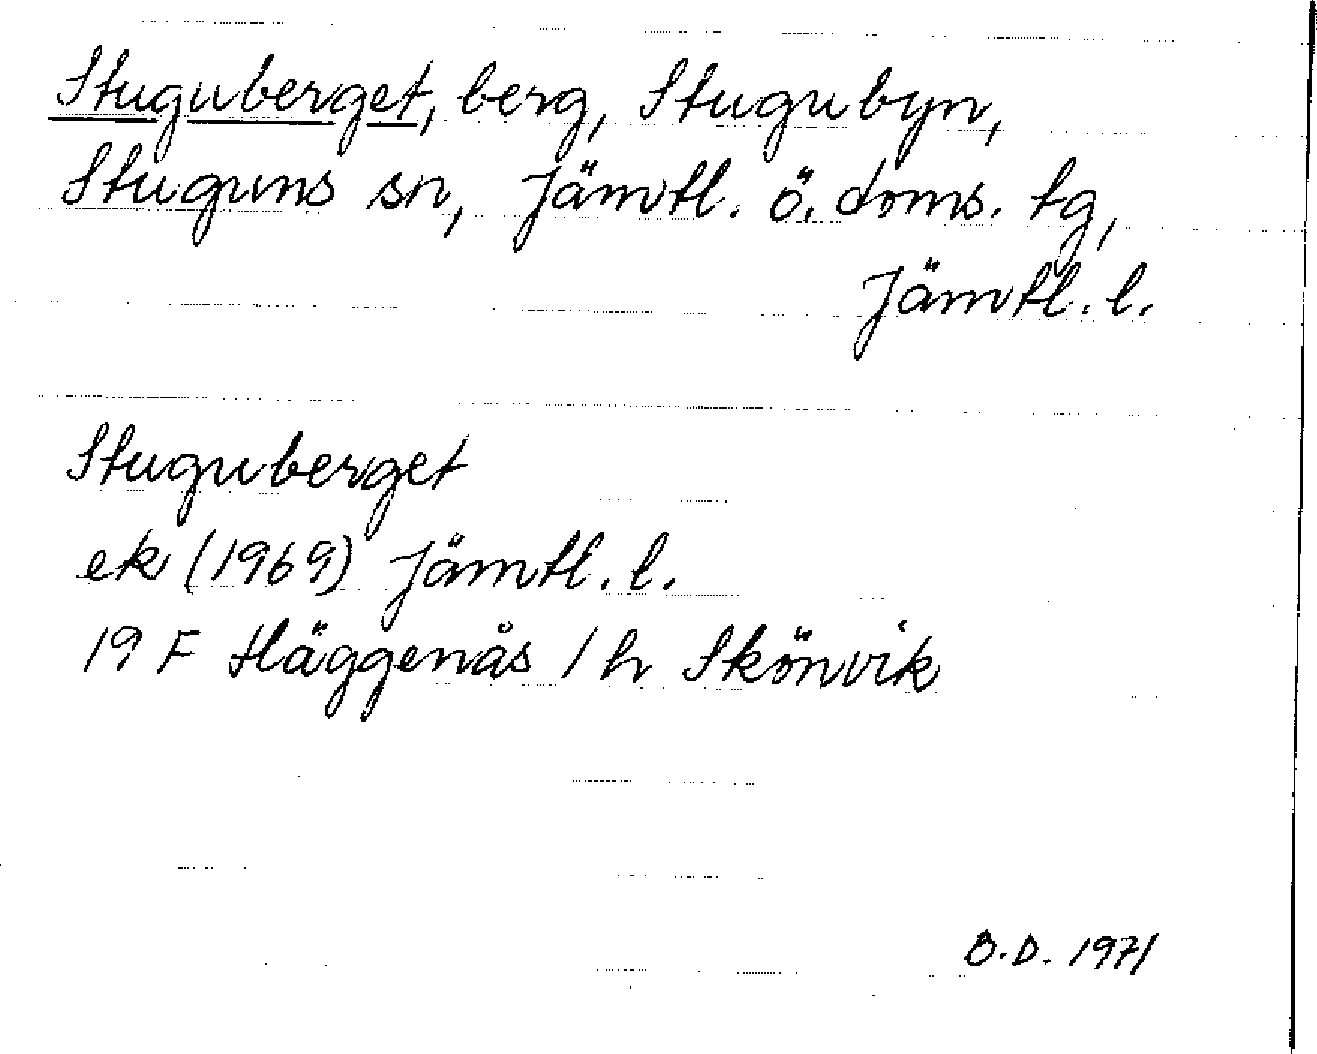 Stuguberget, berg, Stugubyn,
Stuguns sn, Jämtl. ö. doms. tg,
Jämtl. l.
Stuguberget
ek (1969) Jämtl. l.
19 F Häggenås 1 h Skönvik
Ö.D. 1971